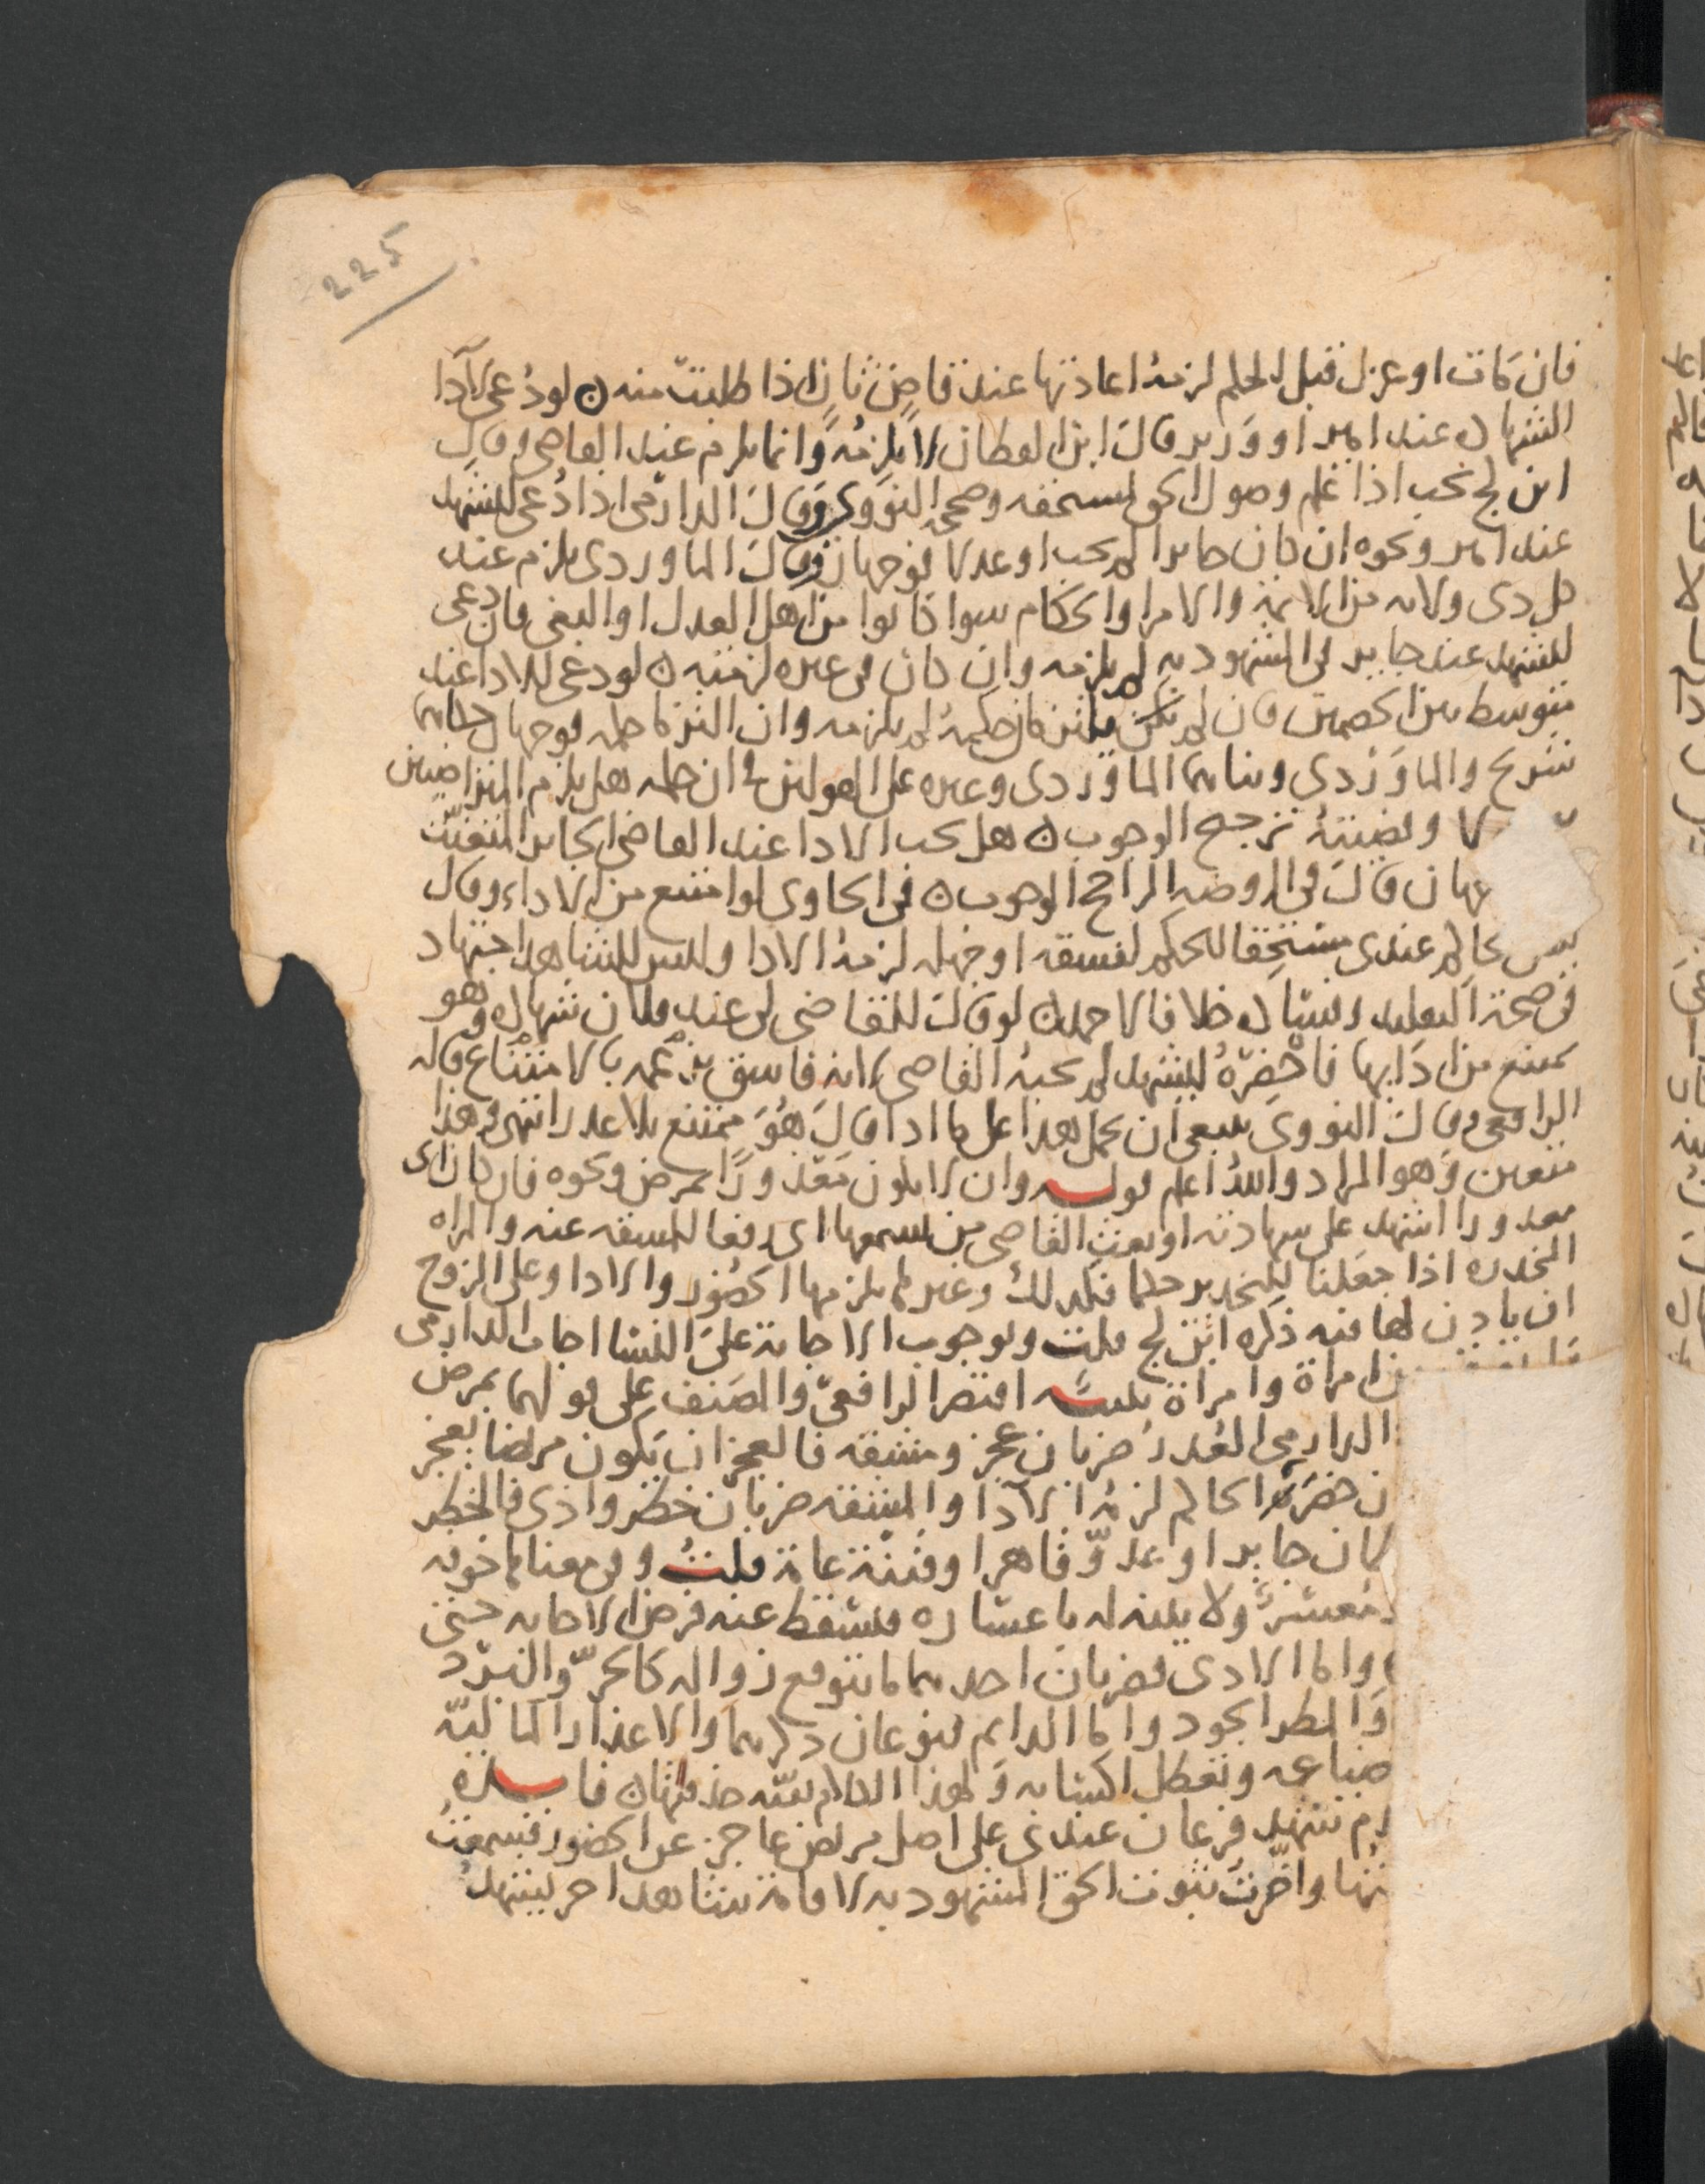 225
فان مات او عزل قبل الحكم لزمه اعادتها عند قاض ثان اذا طلبت منه ن لو دعى لادا
الشهاده عند امير او وزير قال ابن القطان لا يلزمه وانما يلزم عند القاضي وقال
ابن كج يجب اذا علم وصول الحق لمستحقه وصححه النووي وقال الدارمي اذا دُعي ليشهد
عند امير ونحوه ان كان جايرا لم يجب او عدلا فوجهان وقال الماوردي يلزم عند
كل ذي ولايه من الايمة والامرا والحكام سوا كانوا من اهل العدل او البغي فان دعي
ليشهد عند جاير في المشهود به لم يلزمه وان كان في غيره لزمته ن لو دعي للادا عند
متوسط بين الخصمين فان لم يكن يلتزمان حكمه لم يلزمه وان التزما حكمه فوجهان حكاهما
شريح والماوردي وبناهما الماوردي وغيره على القولين في ان حكمه هل يلزم المتراضيين
لا وقضيته ترجيح الوجوب ن هل يجب الادا عند القاضي الجاير المتعنت
وجهان قال في الروضه الراجح الوجوب ن في الحاوي لو امتنع من الاداء وقال
ليس حاكم عندي مستحقا للحكم لفسقه او جهله لزمه الادا وليس للشاهد اجتهاد
في صحة التقليد وفساده خلافا لاحمد ن لو قال للقاضي لي عند فلان شهاده وهو
يمتنع من ادايها فاحضره ليشهد لم يجبه القاضي لانه فاسق بزعمه بالامتناع قاله
الرافعي وقال النووي ينبغي ان يحمل هذا على ما اذا قال هو ممتنع بلا عذر انتهى وهذا
متعين وهو المراد والله اعلم قوله وان لا يكون معذورا بمرض ونحوه فان كان اي
معذورا اشهد على شهادته او بعث القاضي من يسمعها اي دفعا للمشقه عنه والمراه
المخدره اذا جعلنا للتخدير حكما فكذلك وغيرها يلزمها الحضور والادا وعلى الزوج
ان ياذن لها فيه ذكره ابن كج قلت وبوجوب الاجابة على النسا اجاب الدارمي
امراة وامراة تنبيه اقتصر الرافعي والمصنف على قولهما بمرض
الدارمي العذر ضربان عجز ومشقه فالعجز ان يكون مريضا يعجز
ن حضره الحاكم لزمه الادا والمشقه ضربان خطر واذى فالخطر
كان جايرا او عدو قاهرا وفتنة عامة قلت وفي معناه خوفه
معسر ولا بينه له باعساره فيسقط عنه فرض الاجابه حتى
واما الاذى فضربان احدهما ما يتوقع زواله كالحر والبرد
والمطر الجود واما الدايم فنوعان ذكرهما والاعذار الماليه
ضياعه وتعطل اكتسابه ولهذا الكلام تتمه حذفتها ن فايده
م شهد فرعان عندي على اصل مريض عاجز عن الحضور فسمعت
تها واخرت ثبوت الحق المشهود به لاقامة شاهد اخر يشهد